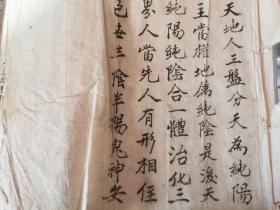 天地人三盤分天為純陽
主當權地属純陰是後天
純陽純陰合一體治化三
界人當先人有形相住
色世立陰半陽鬼神安